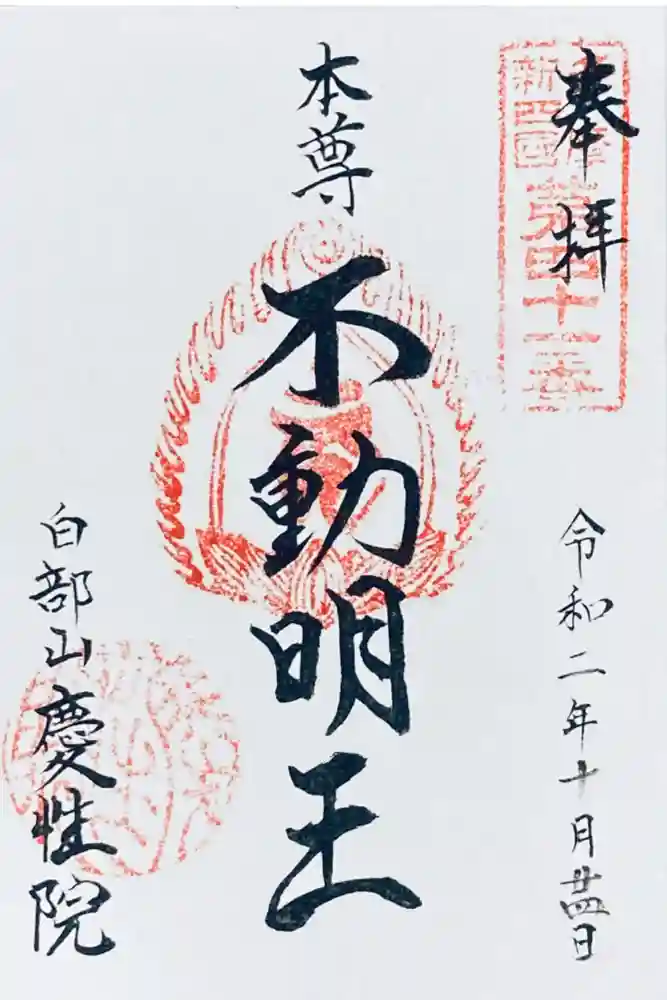 奉拝
新四國
第四十一番
令和二年十月廿四日
本尊
不動明王
白部山慶性院